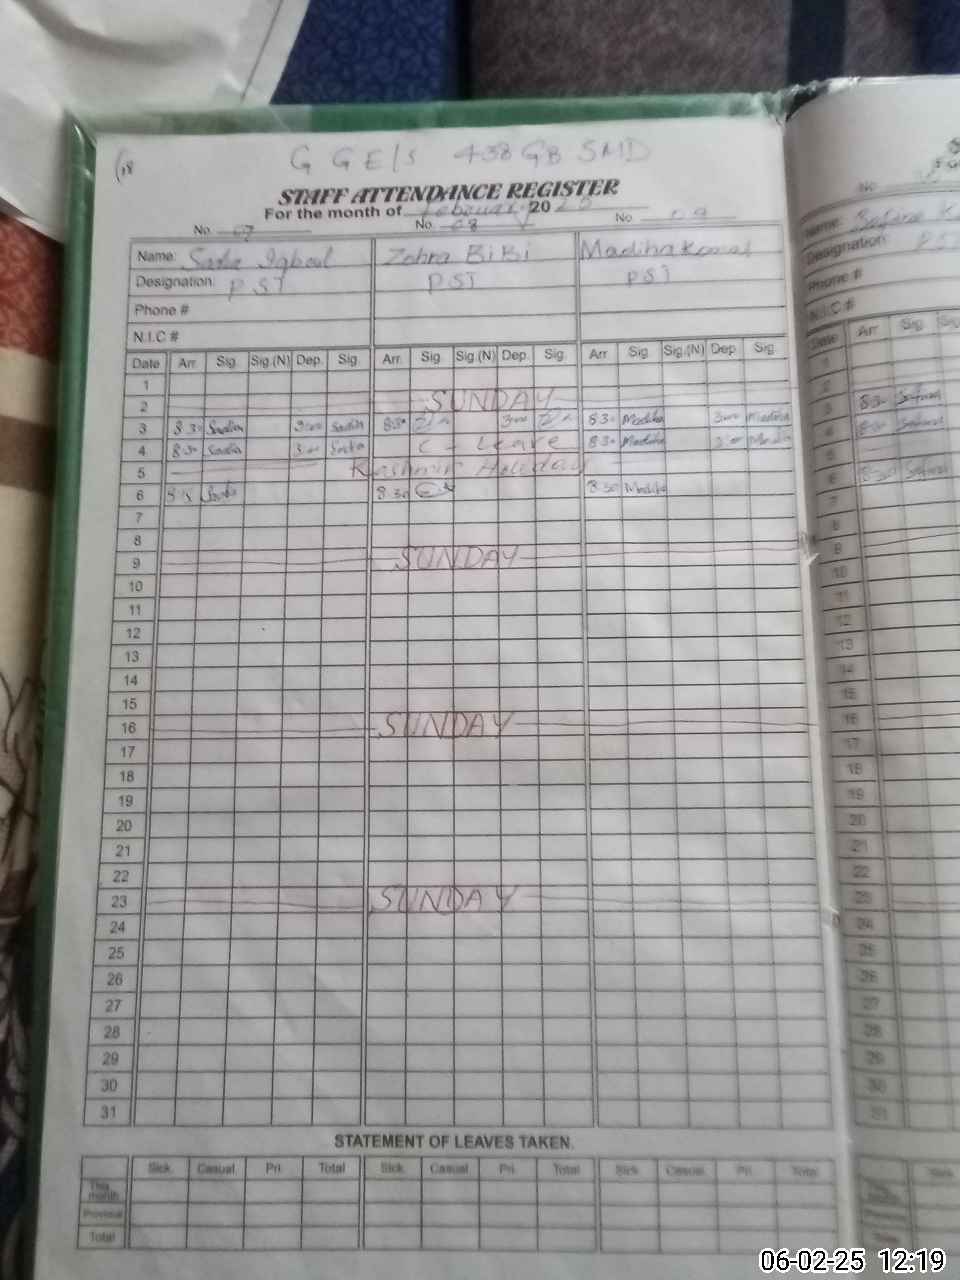 G GE/S 438 GB SMD
STAFF ATTENDANCE REGISTER
For the month of February 20 25
No. 07 No. 08 No. 09
Name: Sadia Iqbal Zohra BiBi Madiha Kanwal
Designation: PST PST PST
Phone #
N.I.C #
Date Arr. Sig. Sig.(N) Dep. Sig. Arr. Sig. Sig.(N) Dep. Sig. Arr Sig. Sig.(N) Dep Sig.
1
2 SUNDAY
3 8.30 Sadia 3:00 Sadia 8:30 3:00 8:30 Madiha 3:00 Madiha
4 8.30 Sadia 3:00 Sadia C - Leave 8:30 Madiha 3:00 Madiha
5 Kashmir Holiday
6 8:15 Sadia 8.30 8:30 Madiha
7
8
9 SUNDAY
10
11
12
13
14
15
16 SUNDAY
17
18
19
20
21
22
23 SUNDAY
24
25
26
27
28
29
30
31
STATEMENT OF LEAVES TAKEN.
Sick. Casual. Pri. Total Sick. Casual Pri. Total Sick. Casual. Pri. Total
This month
Previous
Total
No.
Name:
Designation: PST
Phone #
N.I.C #
Date Arr Sig.
1
2
3 8:30
4 8:30
5
6 8:30
7
8
9
10
11
12
13
14
15
16
17
18
19
20
21
22
23
24
25
26
27
28
29
30
31
06-02-25 12:19